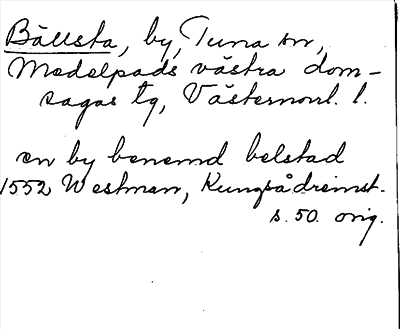 Bällsta, by, Tuna sn,
Medelpads västra dom-
sagas tg, Västernorrl. l.
en by benemd belstad
1552 Westman, Kungsådreinst.
s. 50. orig.